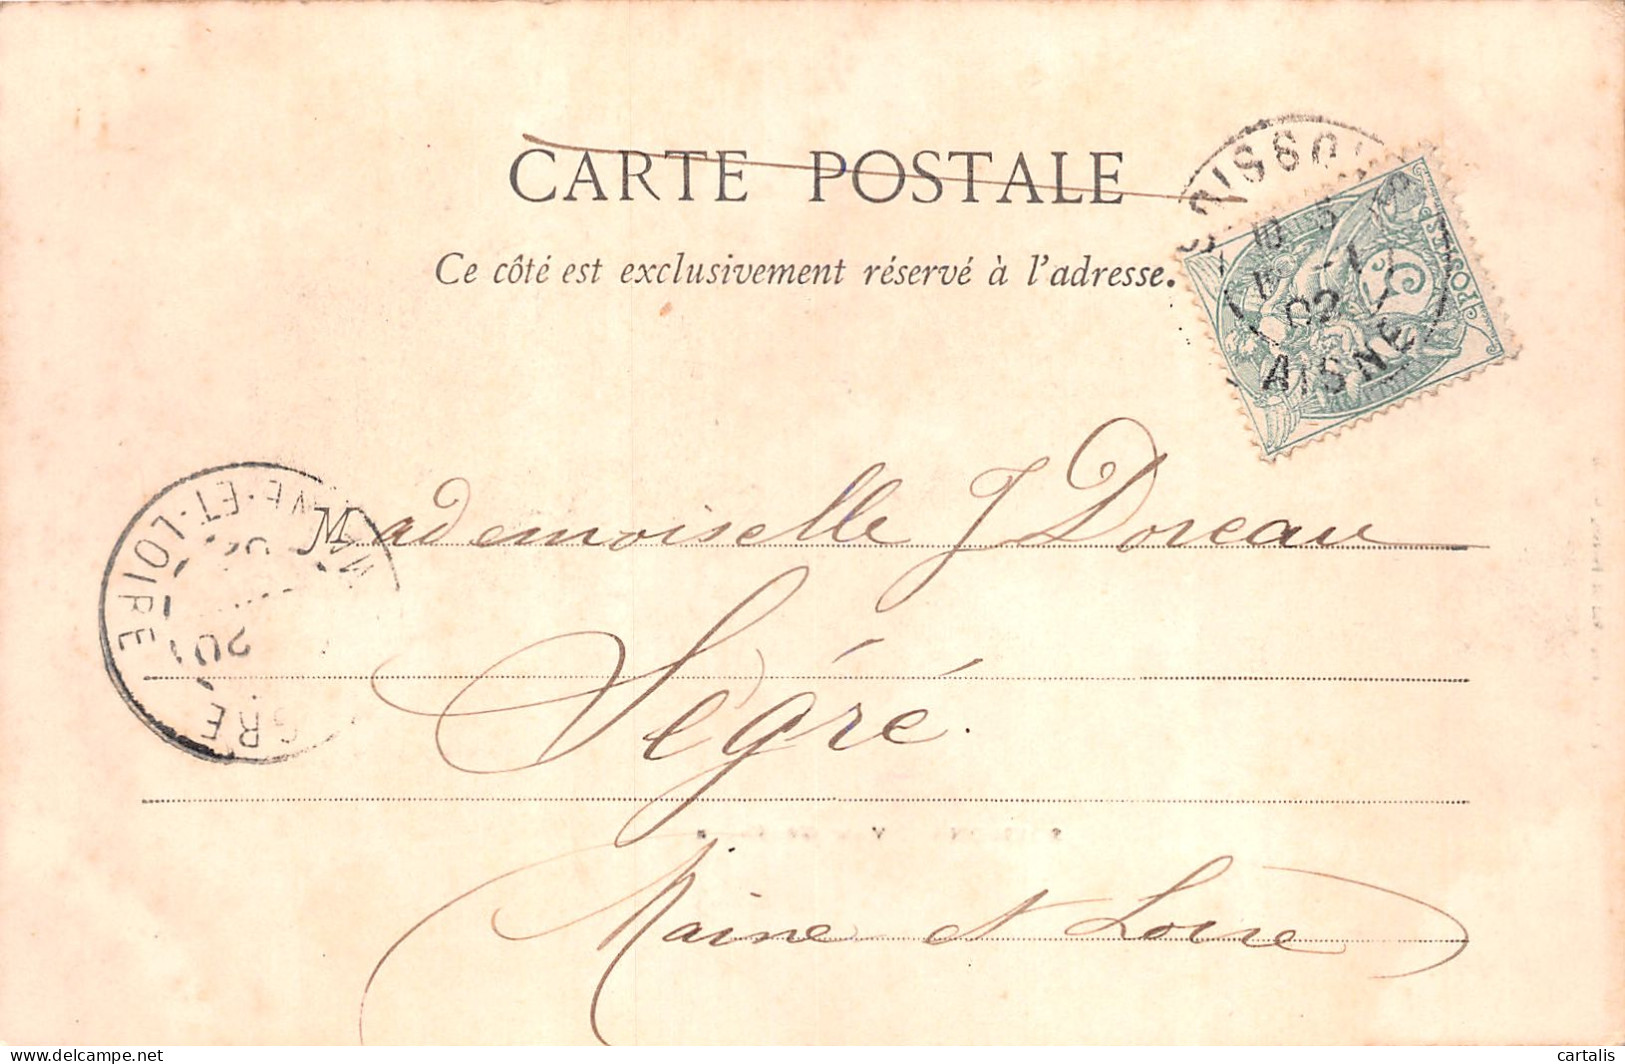 CARTE POSTALE
Ce côté est exclusivement réservé à l'adresse.
POSTES
5
02
AISNE
MAINE-ET-LOIRE
Mademoiselle J Doreau
Ségré.
Maine et Loire
cartalis